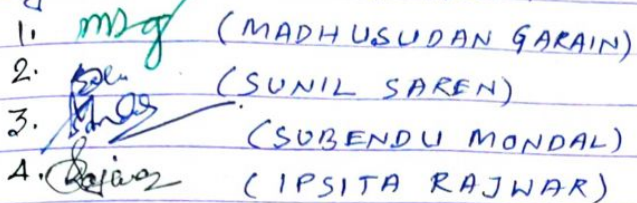 1. (MADHUSUDAN GARAIN)
2. (SUNIL SAREN)
3. (SUBENDU MONDAL)
4. (IPSITA RAJWAR)